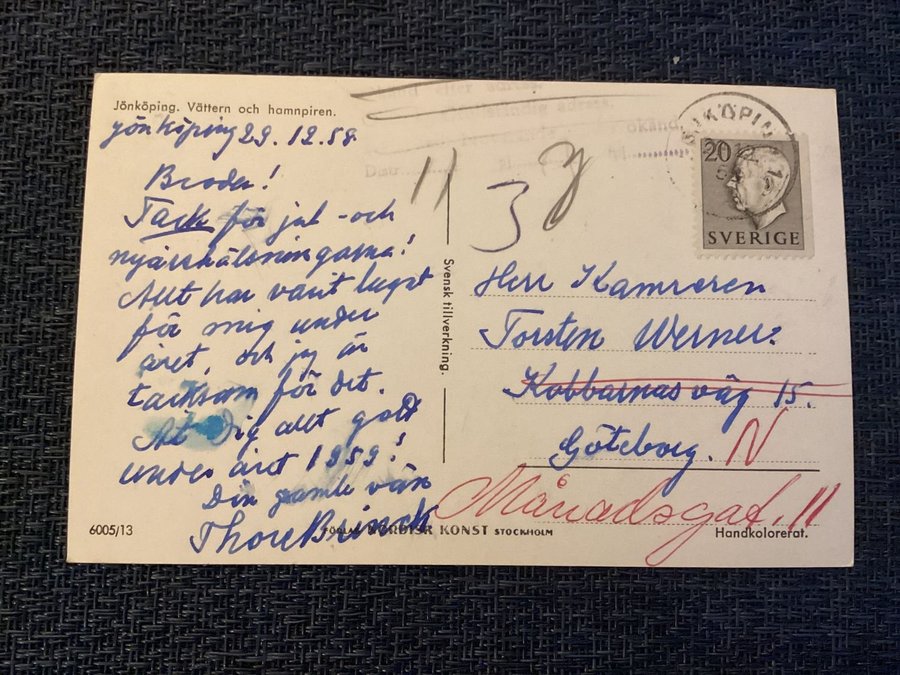 Jönköping. Vättern och hamnpiren.
Jönköping 29.12.58
Broder!
Tack för jul - och
nyårshälsningarna!
Allt har varit lugnt
för mig under
året, och jag är
tacksam för det.
Åt Dig allt gott
under året 1959!
Din gamle vän
Thore
6005/13
NORDISK KONST STOCKHOLM
Svensk tillverkning.
11
3
KÖPING
20
SVERIGE
Herr Kamreren
Torsten Werner.
Kobbarnas väg 15.
Göteborg. N
Månadsgat. 11
Handkolorerat.